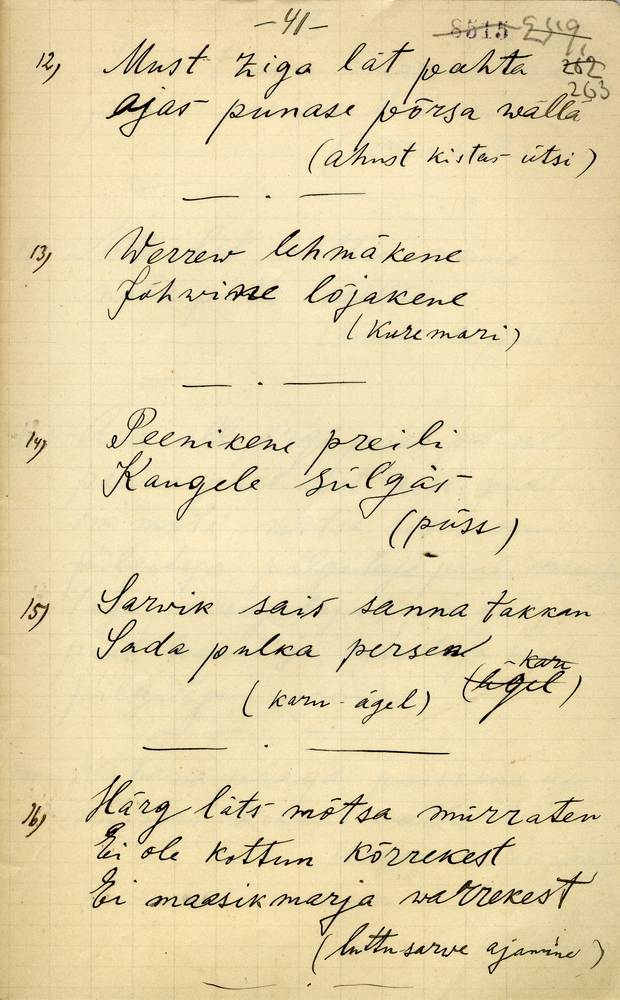 -41-
8515 E 519
12) Must ziga lät pahta 262
ajas punase põrsa wälla 263
(ahust kistas ütsi)
13) Werrew lehmäkene
Jõhwine lõjakene
(Kuremari)
14) Peenikene preili
Kaugele sülgäs
(püss)
15) Sarwik sais sanna takkan
Sada pulka persen
(karu-ägel) (ägel) karu
16) Härg läts mõtsa mürraten
Ei ole kottun kõrrekest
Ei maasikmarja warrekest
(luttusarwe ajamine)